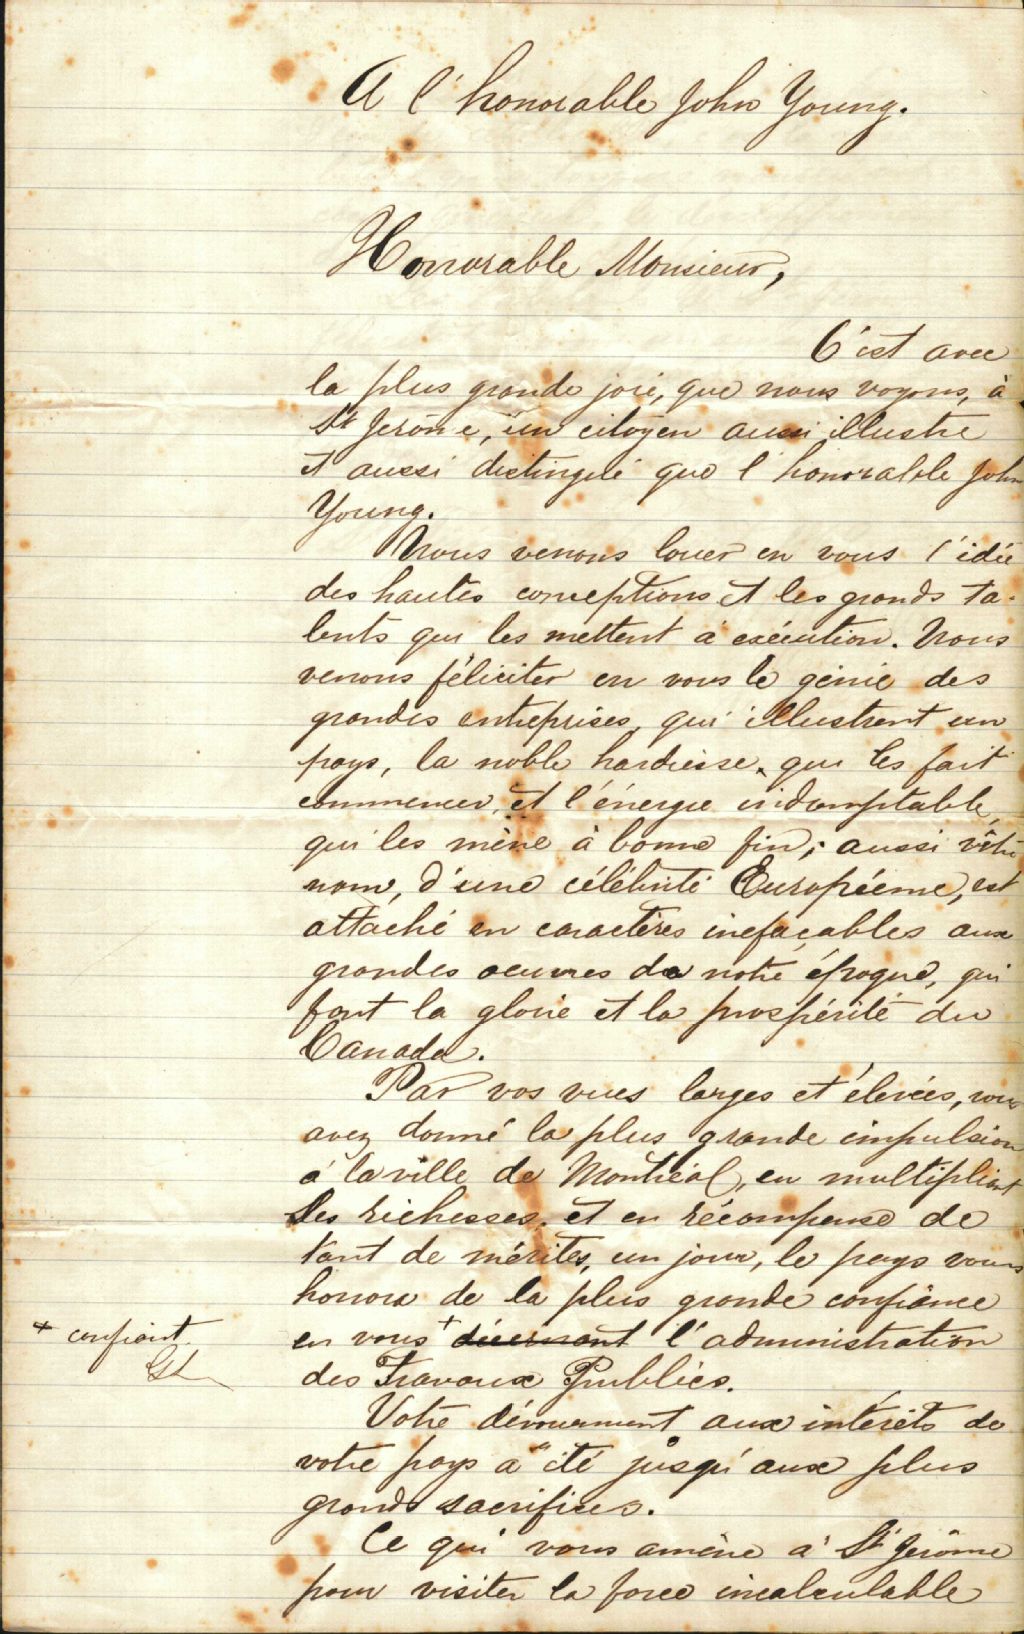 A l'honorable John Young.
Honorable Monsieur,
C'est avec
la plus grande joie, que nous voyons, à
St Jérôme, un citoyen aussi illustre
et aussi distingué que l'honorable John
Young.
Nous venons louer en vous l'idée
des hautes conceptions et les grands ta-
lents qui les mettent à exécution. Nous
venons féliciter en vous le génie des
grandes entreprises, qui illustrent un
pays, la noble hardiesse, qui les fait
commencer, et l'énergie indomptable,
qui les mène à bonne fin; aussi vôtre
nom, d'une célébrité Européenne, est
attaché en caractères inefaçables aux
grandes oeuvres de notre époque, qui
font la gloire et la prospérité du
Canada.
Par vos vues larges et élevées, vous
avez donné la plus grande impulsion
à la ville de Montréal, en multipliant
ses richesses, et en récompense de
tant de mérites, un jour, le pays vous
honora de la plus grande confiance
en vous + décernant l'administration
+ confiant.
des Travaux Publics.
Votre dévouement aux intérêts de
votre pays a été jusqu'aux plus
grands sacrifices.
Ce qui vous amène à St Jérôme
pour visiter la force incalculable